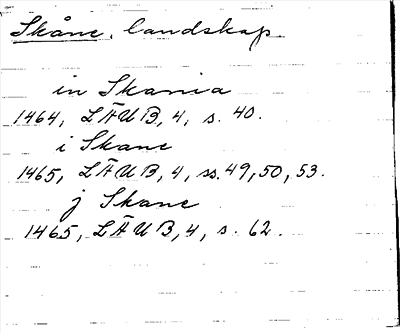 Skåne, landskap
in Skania
1464, LÄUB, 4, s. 40.
i Skane
1465, LÄUB, 4, ss. 49, 50, 53.
j Skane
1465, LÄUB, 4, s. 62.